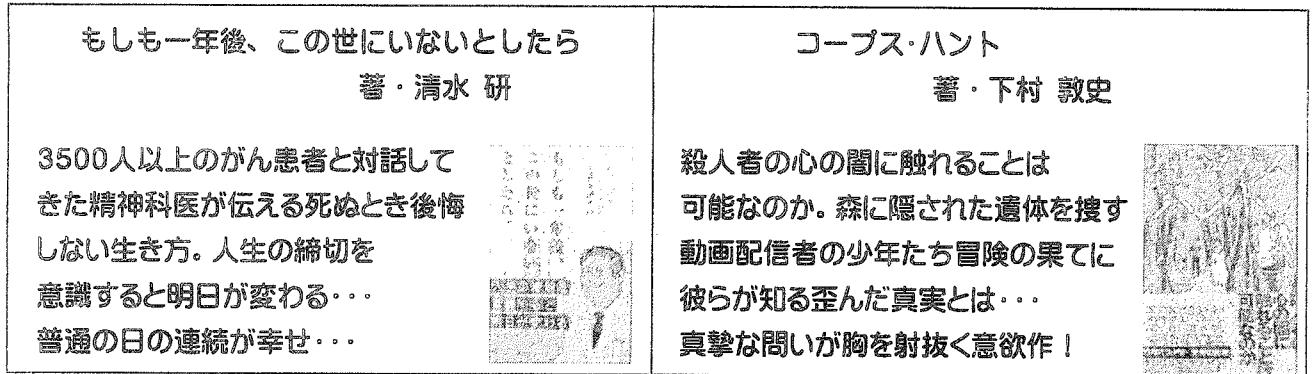 もしも一年後、この世にいないとしたら
著・清水 研
3500人以上のがん患者と対話して
きた精神科医が伝える死ぬとき後悔
しない生き方。人生の締切を
意識すると明日が変わる・・・
普通の日の連続が幸せ・・・
コープス・ハント
著・下村 敦史
殺人者の心の闇に触れることは
可能なのか。森に隠された遺体を捜す
動画配信者の少年たち冒険の果てに
彼らが知る歪んだ真実とは・・・
真摯な問いが胸を射抜く意欲作！